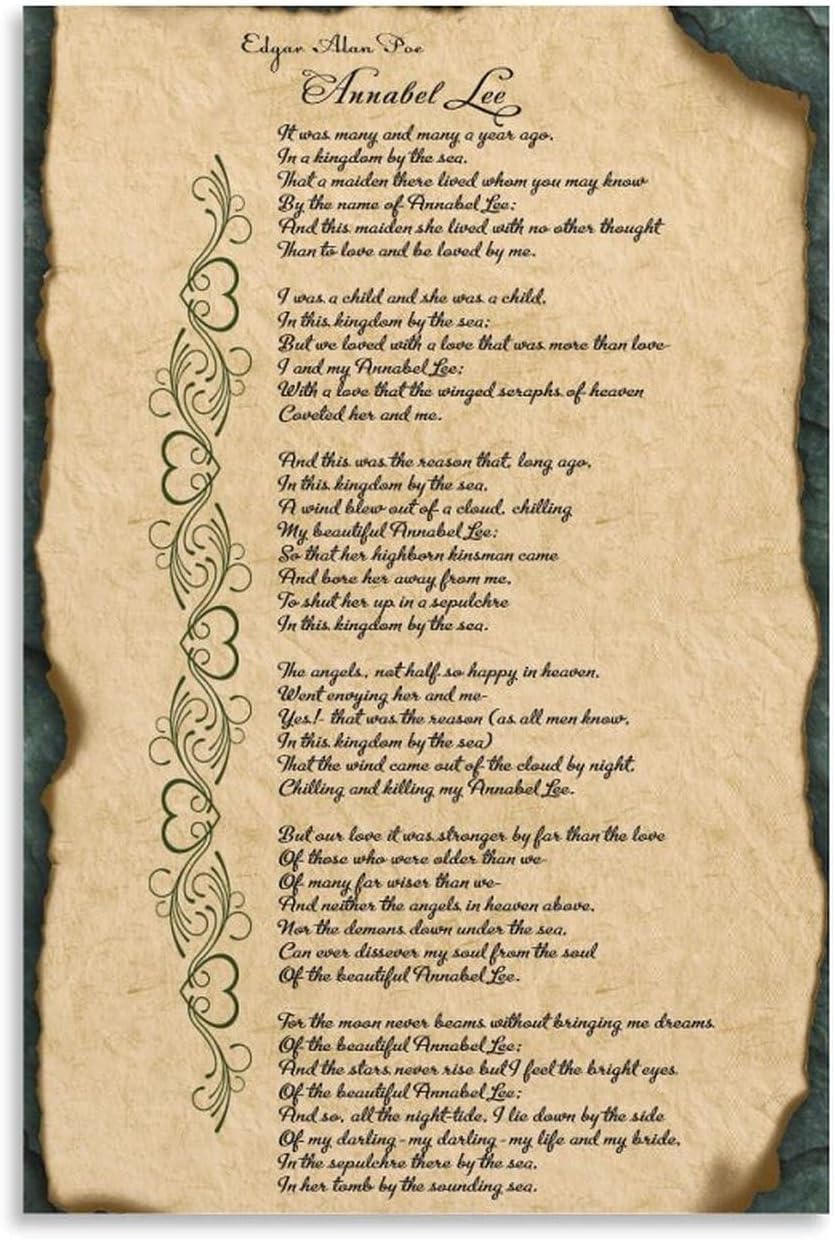 Edgar Alan Poe
Annabel Lee
It was many and many a year ago,
In a kingdom by the sea,
That a maiden there lived whom you may know
By the name of Annabel Lee;
And this maiden she lived with no other thought
Than to love and be loved by me.
I was a child and she was a child,
In this kingdom by the sea;
But we loved with a love that was more than love-
I and my Annabel Lee;
With a love that the winged seraphs of heaven
Coveted her and me.
And this was the reason that, long ago,
In this kingdom by the sea,
A wind blew out of a cloud, chilling
My beautiful Annabel Lee;
So that her highborn kinsman came
And bore her away from me,
To shut her up in a sepulchre
In this kingdom by the sea.
The angels, not half so happy in heaven,
Went envying her and me-
Yes!- that was the reason (as all men know,
In this kingdom by the sea)
That the wind came out of the cloud by night,
Chilling and killing my Annabel Lee.
But our love it was stronger by far than the love
Of those who were older than we-
Of many far wiser than we-
And neither the angels in heaven above,
Nor the demons down under the sea,
Can ever dissever my soul from the soul
Of the beautiful Annabel Lee.
For the moon never beams without bringing me dreams
Of the beautiful Annabel Lee;
And the stars never rise but I feel the bright eyes
Of the beautiful Annabel Lee;
And so, all the night-tide, I lie down by the side
Of my darling - my darling - my life and my bride,
In the sepulchre there by the sea,
In her tomb by the sounding sea.